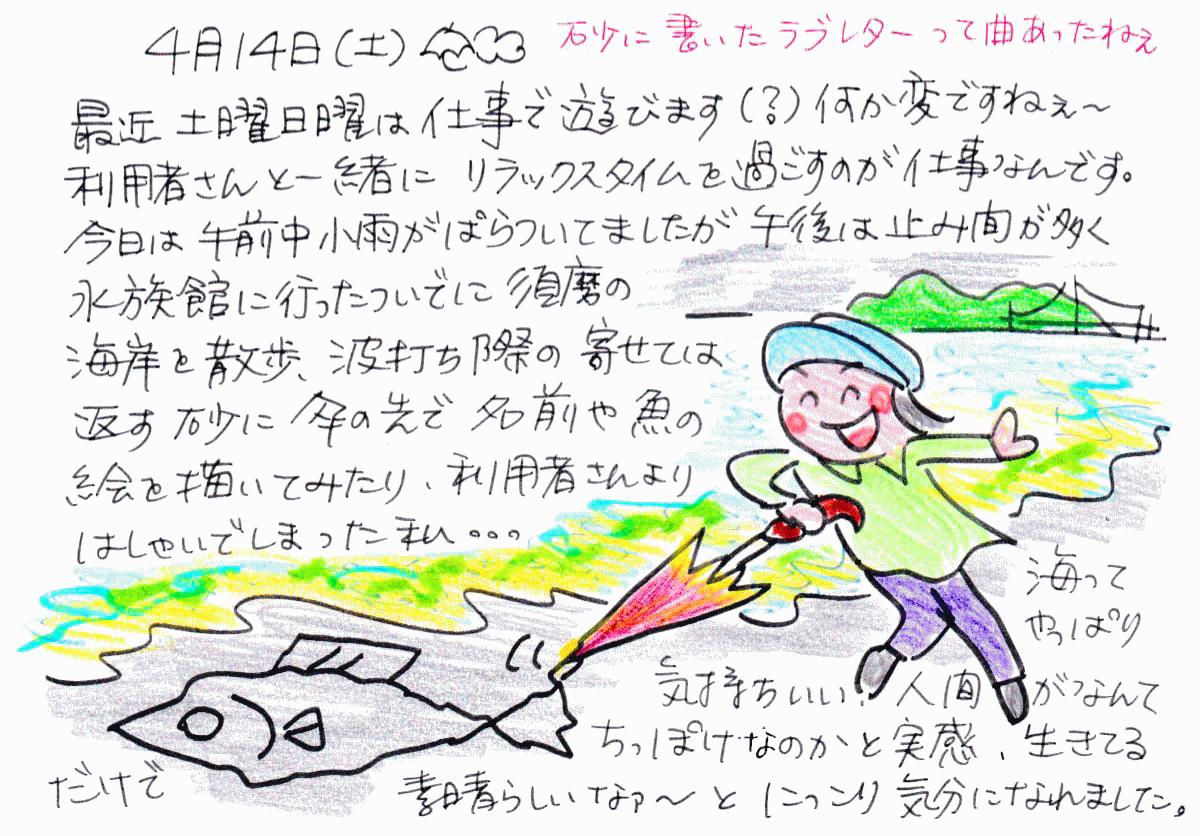 4月14日(土)
砂に書いたラブレターって曲あったねぇ
最近 土曜日曜は仕事で遊びます(?)何か変ですねぇ〜
利用者さんと一緒に リラックスタイムを過ごすのが仕事なんです。
今日は 午前中小雨がぱらついてましたが 午後は止み間が多く
水族館に行ったついでに 須磨の
海岸を散歩、波打ち際の 寄せては
返す 砂に 傘の先で 名前や魚の
絵を描いてみたり、利用者さんより
はしゃいでしまった私。。。
海って
やっぱり
気持ちいい、人間がなんて
ちっぽけなのかと実感、生きてる
だけで 素晴らしいなァ〜と にっこり気分になれました。